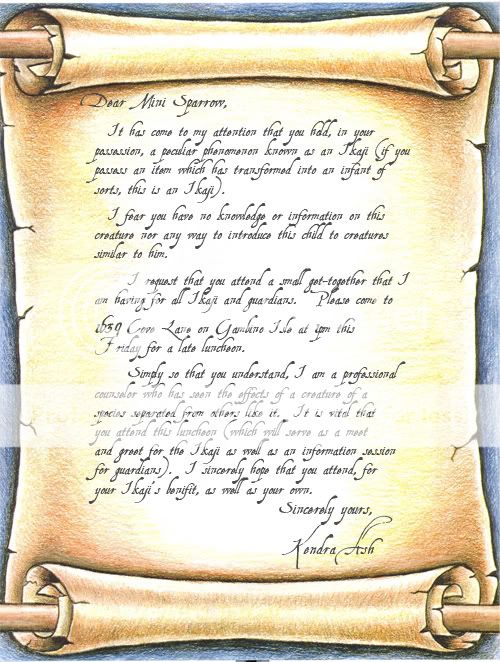 Dear Mini Sparrow,
It has come to my attention that you held, in your
possession, a peculiar phenomenon known as an Ikaji (if you
possess an item which has transformed into an infant of
sorts, this is an Ikaji).
I fear you have no knowledge or information on this
creature nor any way to introduce this child to creatures
similar to him.
I request that you attend a small get-together that I
am having for all Ikaji and guardians. Please come to
1639 Cove Lane on Gambino Isle at 1pm this
Friday for a late luncheon.
Simply so that you understand, I am a professional
counselor who has seen the effects of a creature of a
species separated from others like it. It is vital that
you attend this luncheon (which will serve as a meet
and greet for the Ikaji as well as an information session
for guardians). I sincerely hope that you attend, for
your Ikaji's benifit, as well as your own.
Sincerely yours,
Kendra Ash